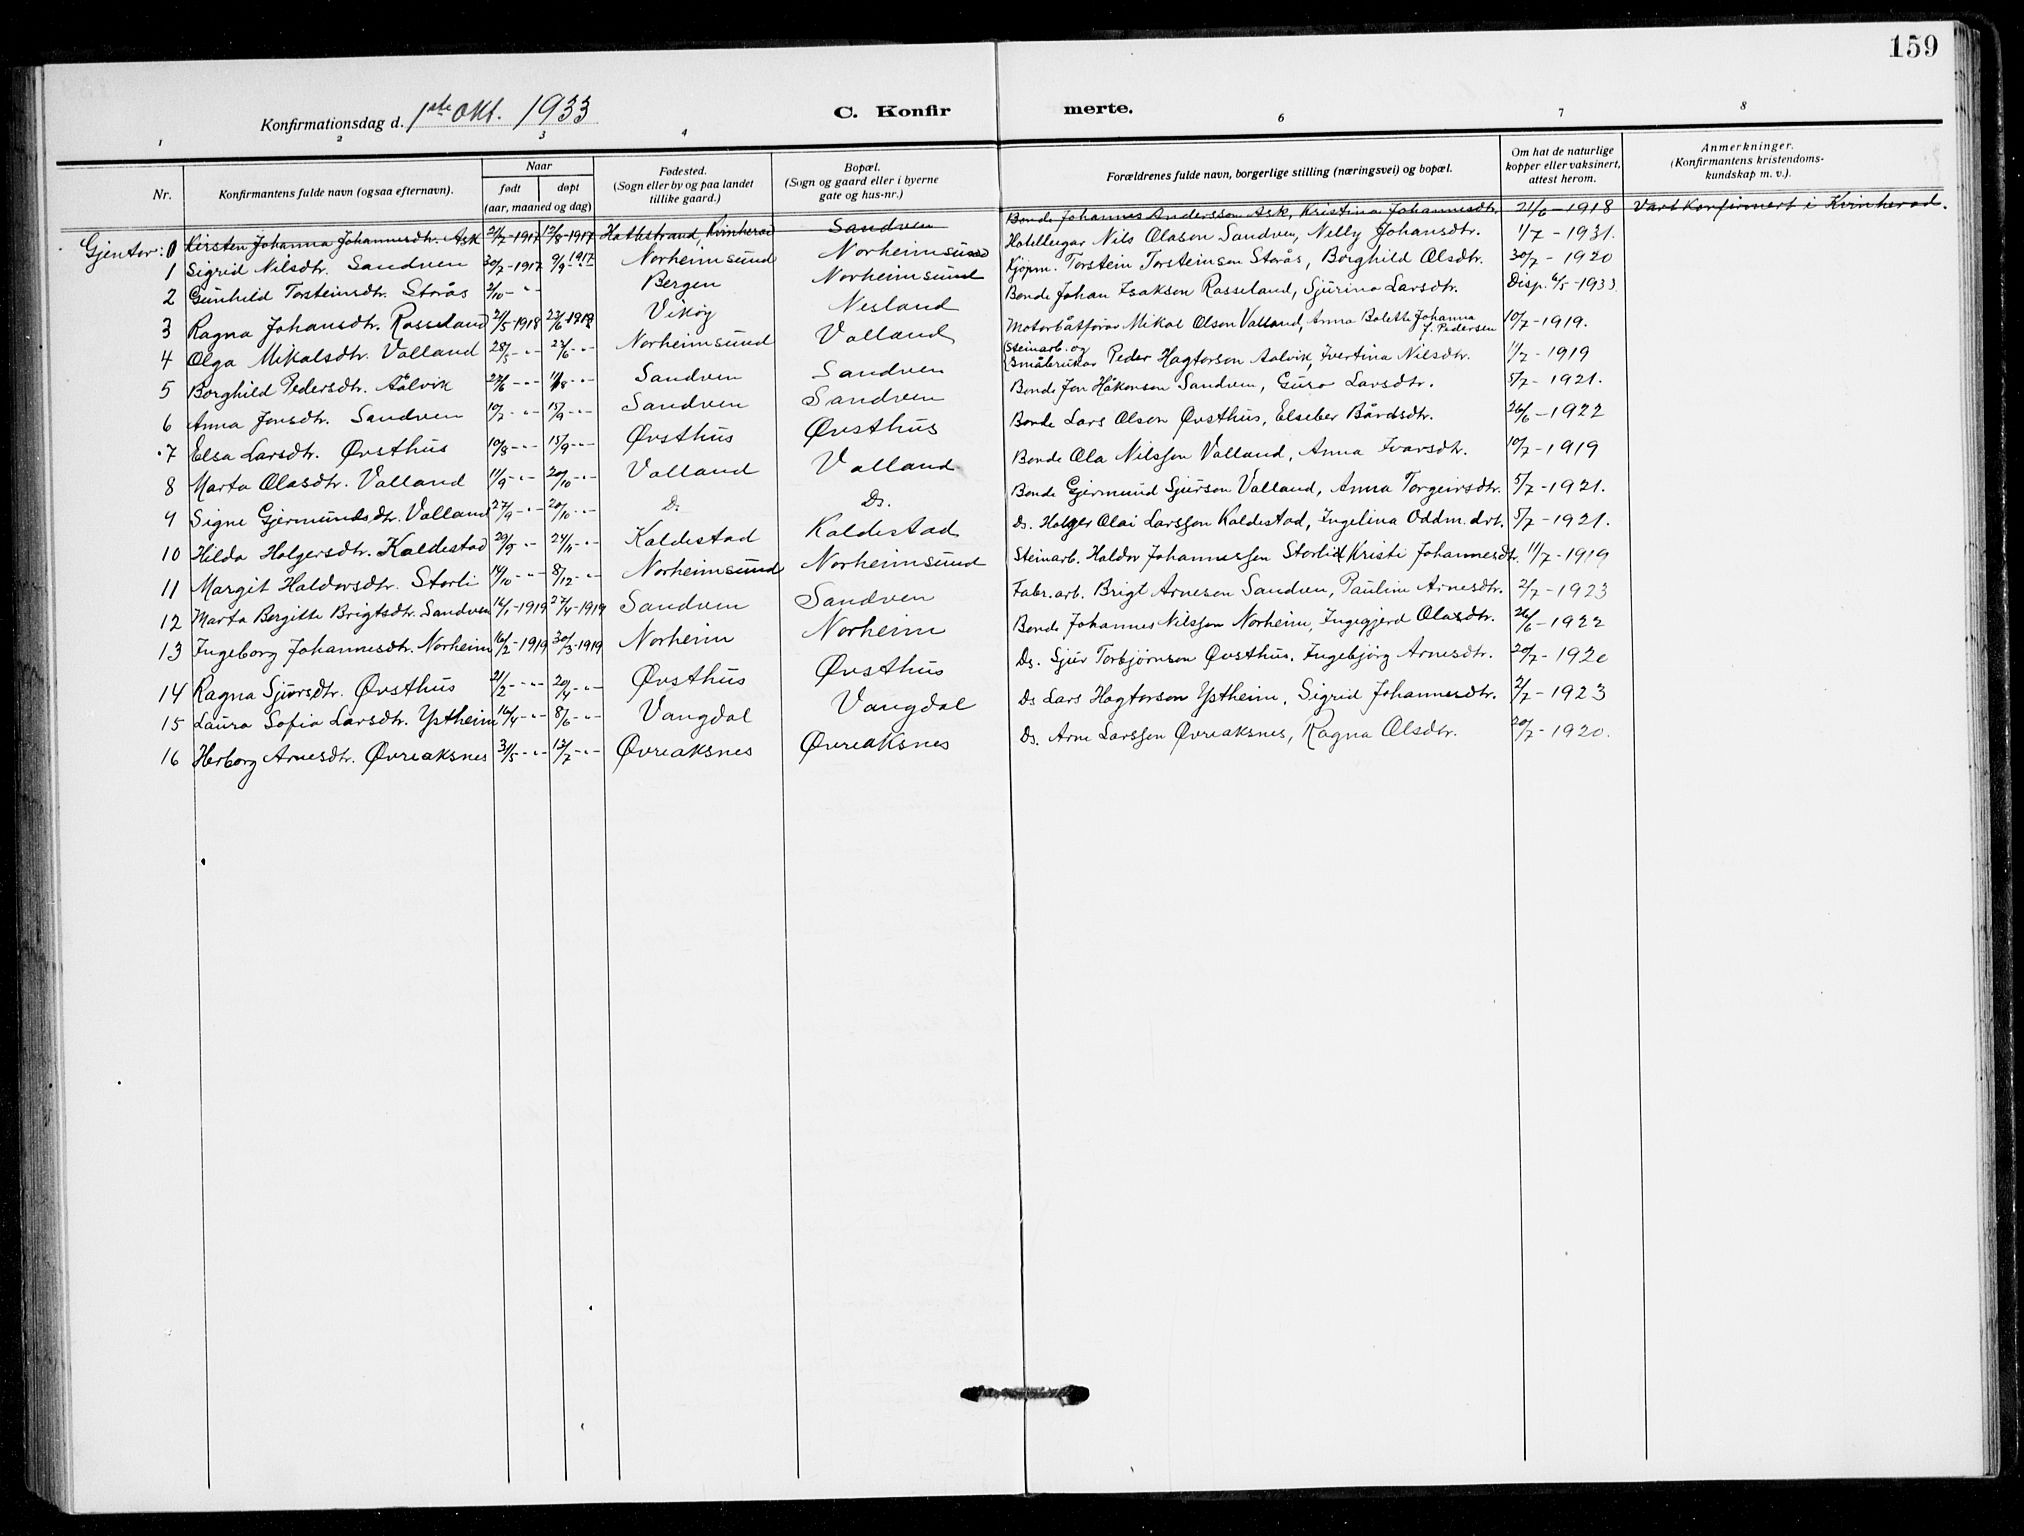 159
Konfirmationsdag d. 1ste Okt. 1933
C. Konfirmerte.
1 2 3 4 6 7 8
Nr. Konfirmantens fulde navn (ogsaa efternavn). Naar født døpt (aar, maaned og dag) Fødested. (Sogn eller by og paa landet tillike gaard.) Bopæl. (Sogn og gaard eller i byerne gate og hus-nr.) Forældrenes fulde navn, borgerlige stilling (næringsvei) og bopæl. Om hat de naturlige kopper eller vaksinert, attest herom. Anmerkninger. (Konfirmantens kristendoms-kundskap m. v.).
Gjentor: 0 Kirsten Johanna Johannesdtr. Ask 21/7-1917 12/8-1917 Hattstrand, Kvinherad Sandven Bonde Johannes Andersson Ask, Kristina Johannesdtr. 21/6-1918 Vart Konfirmert i Kvinherad.
1 Sigrid Nilsdtr. Sandven 30/7-1917 9/9 1917 Norheimsund Norheimsund Hotelleigar Nils Olason Sandven, Nelly Johansdtr. 1/7-1931.
2 Gunhild Torsteinsdtr. Storås 2/10-"- Bergen Norheimsund Kjøpm. Torstein Torsteinson Storås, Borghild Olsdtr. 30/7-1920
3 Ragna Johansdtr. Rosseland 21/5-1918 23/6-1918 Vikøy Nesland Bonde Johan Isakson Rosseland, Sjurina Larsdtr. Disp. 6/5-1933
4 Olga Mikalsdtr. Valland 28/5-"- 23/6-"- Norheimsund Valland Motorbåtførar Mikal Olson Valland, Anna Bolette Johanna J. Pedersen 10/7-1919.
5 Borghild Pedersdtr. Aalvik 27/6-"- 11/8-"- Sandven Sandven Steinarb. og Småbrukar Peder Hagtorson Aalvik, Ivertina Nilsdtr. 11/7-1919
6 Anna Jonsdtr. Sandven 10/7-"- 15/9-"- Sandven Sandven Bonde Jon Håkonson Sandven, Guro Larsdtr. 5/7-1921.
7 Elsa Larsdtr. Øvsthus 10/8-"- 15/9-"- Øvsthus Øvsthus Bonde Lars Olson Øvsthus, Elseber Bårdsdtr. 26/6-1922
8 Marta Olasdtr. Valland 11/9-"- 20/10-"- Valland Valland Bonde Ola Nilsson Valland, Anna Ivarsdtr. 10/7-1919
9 Signe Gjermundsdtr. Valland 27/9-"- 20/10-"- Ds. Ds. Bonde Gjermund Sjurson Valland, Anna Torgeirsdtr. 5/7-1921.
10 Hilda Holgersdtr. Kaldestad 29/9-"- 24/11-"- Kaldestad Kaldestad Ds. Holger Olai Larsson Kaldestad, Ingelina Oddm.dtr. 5/7-1921.
11 Margit Haldorsdtr. Storli 14/10-"- 8/12-"- Norheimsund Norheimsund Steinarb. Haldor Johannesson Storli, Kristi Johannesdtr. 11/7-1919
12 Marta Bergitte Brigtsdtr. Sandven 16/1-1919 27/4-1919 Sandven Sandven Fabr.arb. Brigt Arneson Sandven, Pauline Arnesdtr. 2/7-1923
13 Ingeborg Johannesdtr. Norheim 16/2-1919 30/3-1919 Norheim Norheim Bonde Johannes Nilsson Norheim, Ingegjerd Olasdtr. 26/6-1922
14 Ragna Sjursdtr. Øvsthus 21/2-"- 20/4-"- Øvsthus Øvsthus Ds. Sjur Torbjørnson Øvsthus, Ingebjørg Arnesdtr. 20/7-1920
15 Laura Sofia Larsdtr. Ystheim 16/4-"- 8/6-"- Vangdal Vangdal Ds Lars Hagtorson Ystheim, Sigrid Johannesdtr. 2/7-1923
16 Herborg Arnesdtr. Øvreaksnes 31/5-"- 13/7-"- Øvreaksnes Øvreaksnes Ds. Arne Larsson Øvreaksnes, Ragna Olsdtr. 20/7-1920.